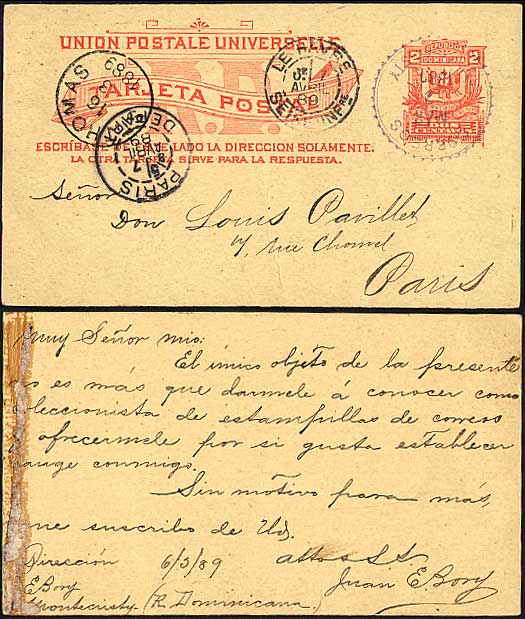 UNION POSTALE UNIVERSELLE
TARJETA POS
ESCRÍBASE DE ESTE LADO LA DIRECCION SOLAMENTE.
LA OTRA TARJETA SIRVE PARA LA RESPUESTA.
2 REPUBLICA DOMINICANA 2
CENTAVOS
THOMAS
1889
LE HAVRE
AVRIL
89
SEINE INFRE
PARIS
DEPART
Señor
Don Louis Pavillet
7, rue Chomel
Paris
Muy Señor mio:
El único objeto de la presente
no es más que darmele á conocer como
coleccionista de estampillas de correos
y ofrecermele por si gusta establecer
cange conmigo.
Sin motivo para más,
me suscribo de Ud.
Dirección 6/3/89 atto S.S.
E Bory Juan E. Bory
Montecristy (R. Dominicana)